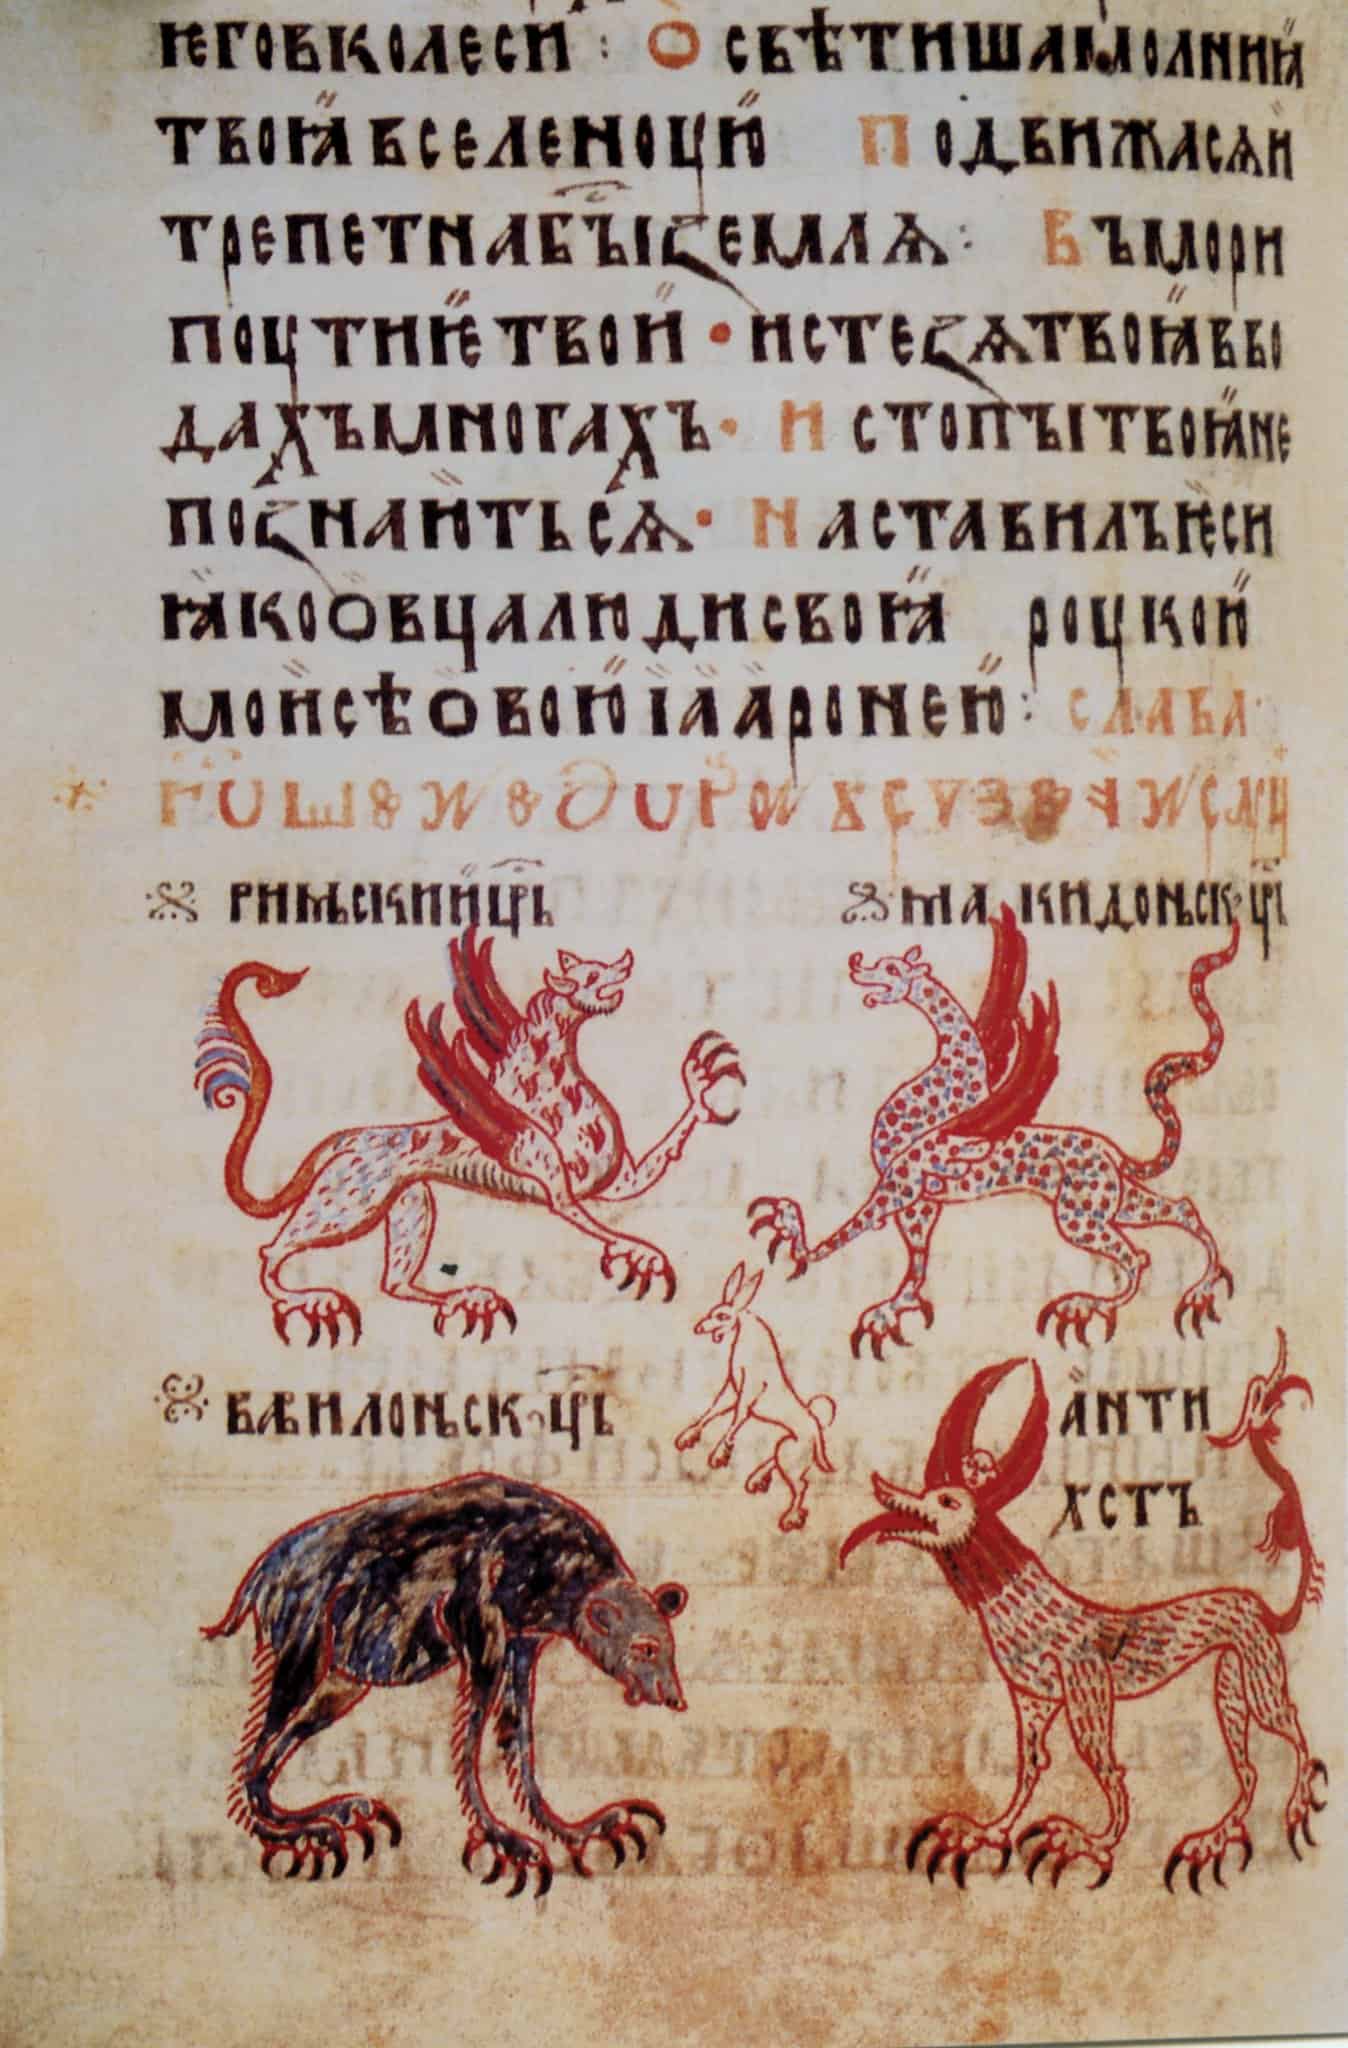 ѥговколеси : Освѣтишамолниꙗ
твоꙗвселеноуꙇѫ Подвижасѧи
трепетнабꙑземлѧ : Въмори
поутиѥтвои · истезѧтвоꙗвьо
дахъмногахъ · Истопꙑтвоꙗне
познаютьсѧ · Наставилъѥси
ꙗкоовцалюдисвоꙗ роукою
моисѣовоюіааронею : слава
римьскиицрь макидоньскꙑцрь
вавилоньскꙑцрь анти
хстъ